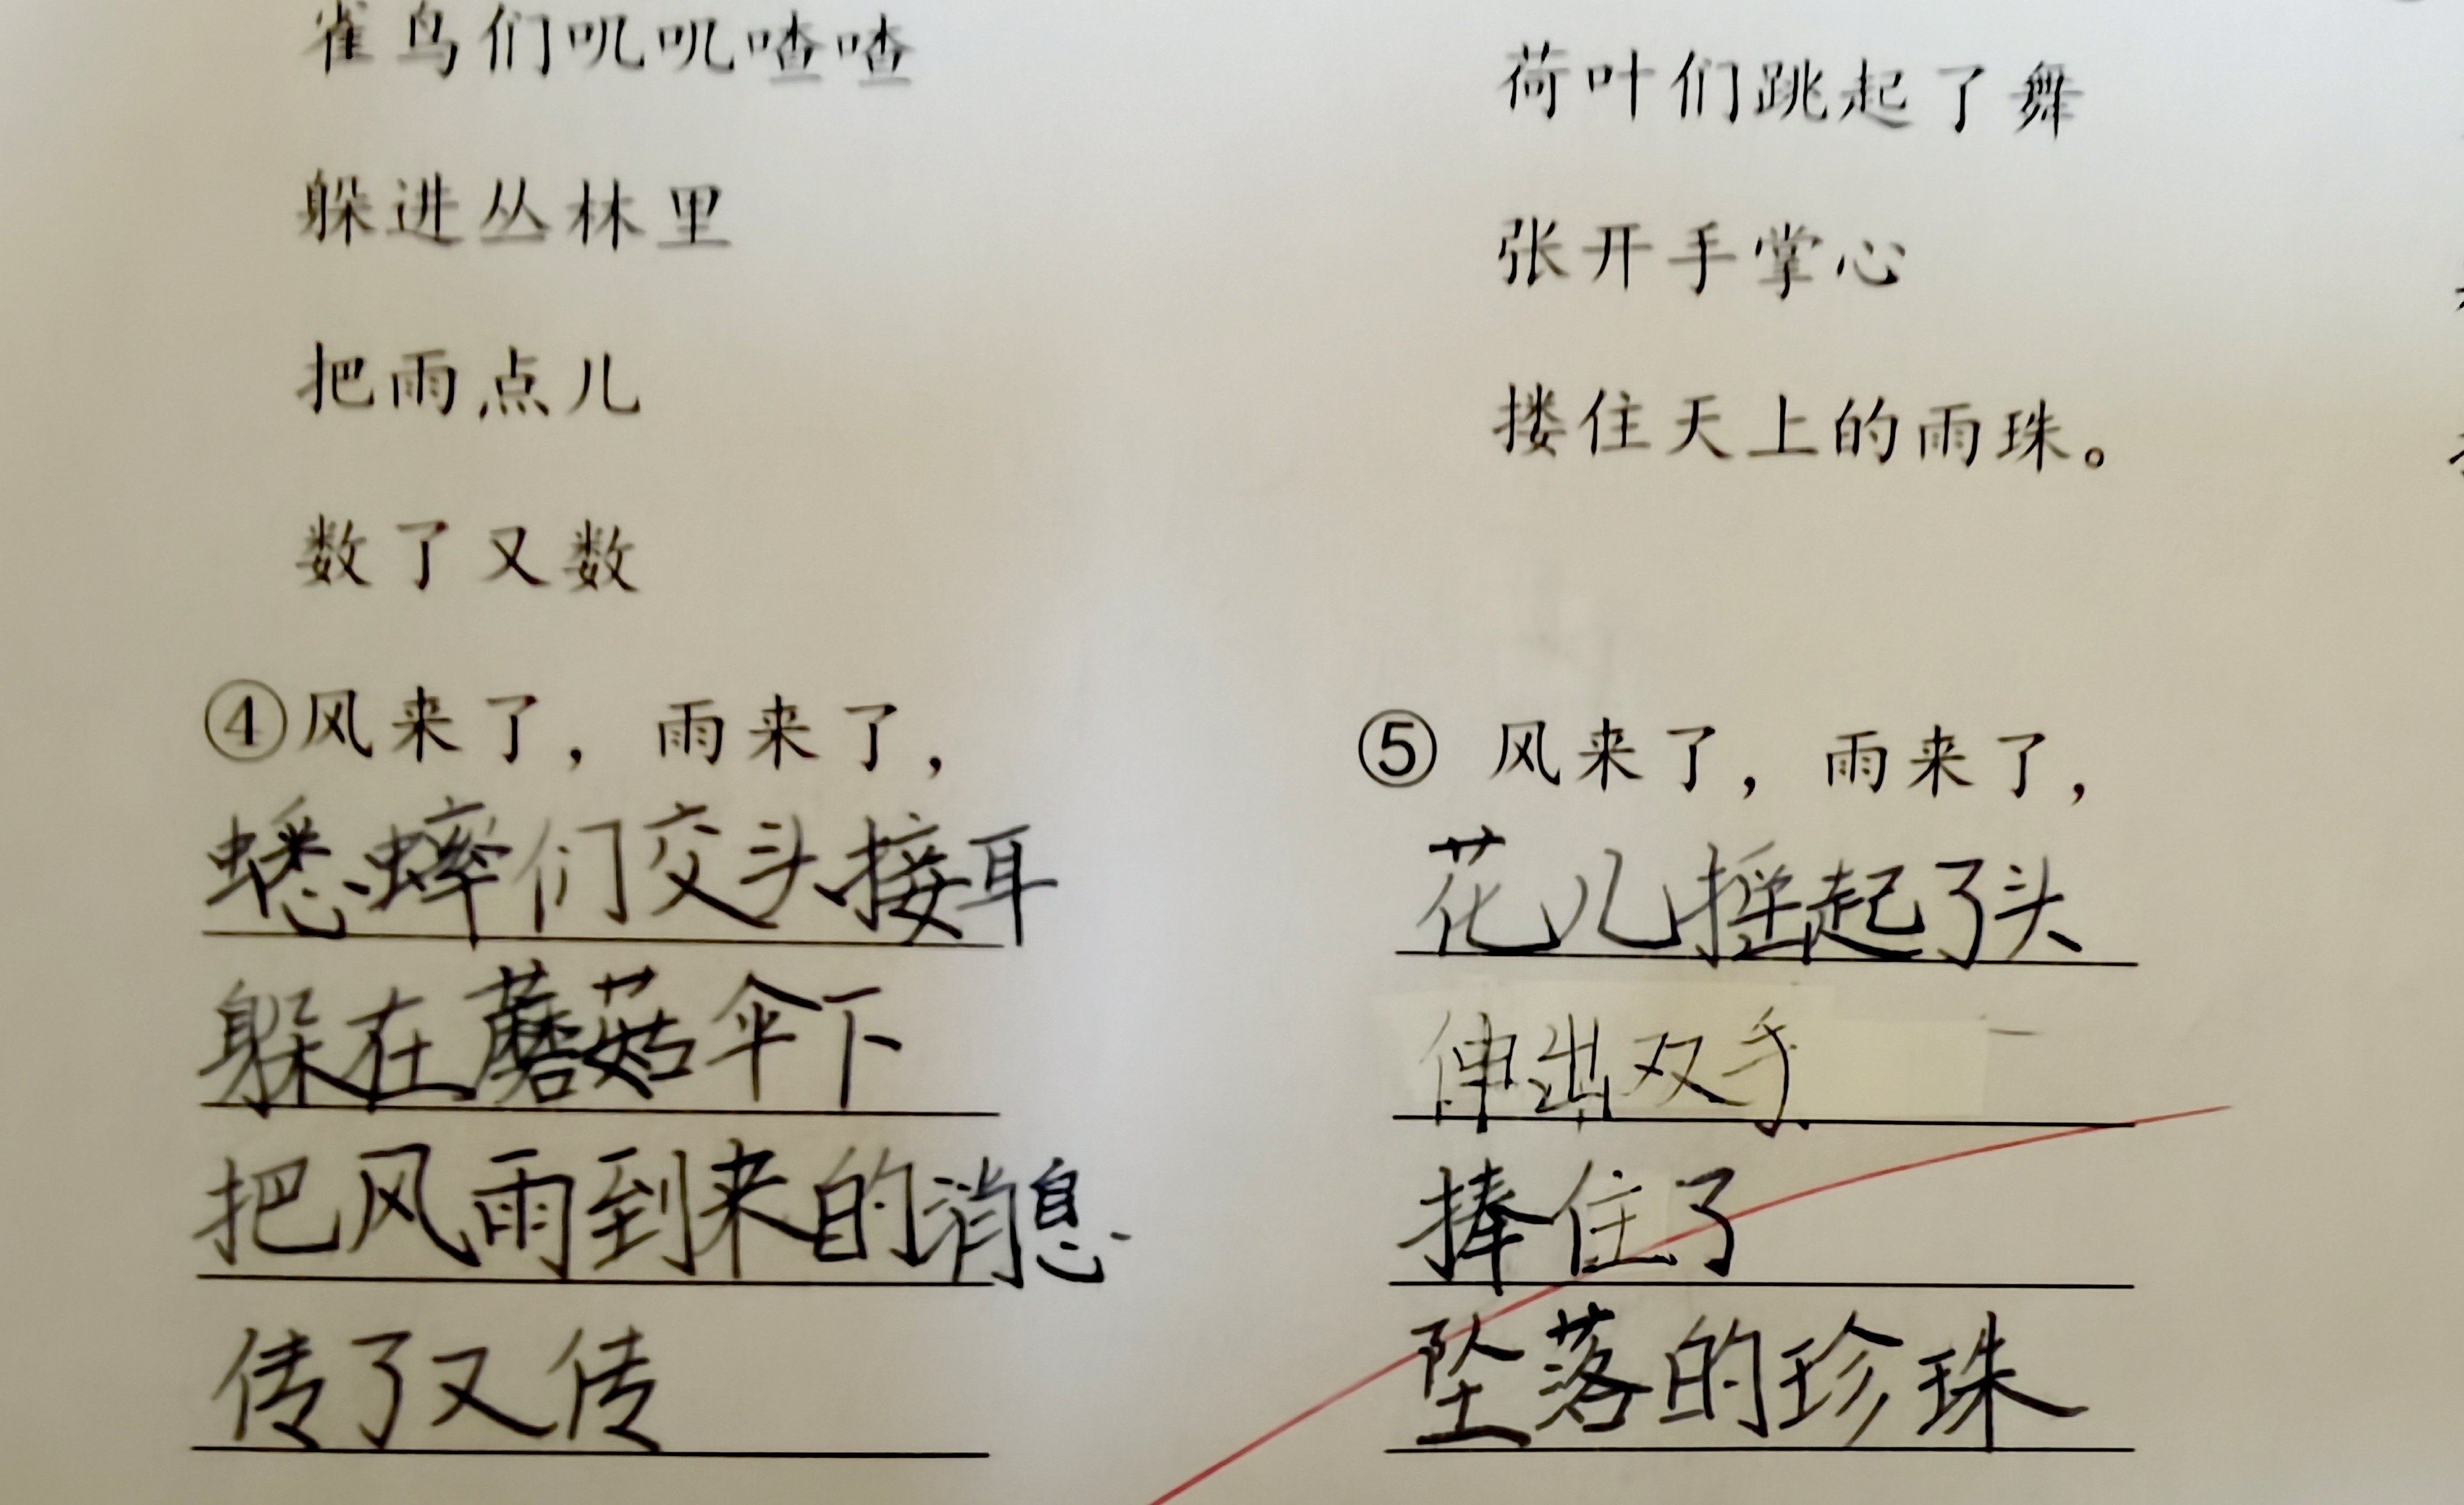 雀鸟们叽叽喳喳
躲进丛林里
把雨点儿
数了又数
④风来了，雨来了，
蟋蟀们交头接耳
躲在蘑菇伞下
把风雨到来的消息
传了又传
荷叶们跳起了舞
张开手掌心
搂住天上的雨珠。
⑤ 风来了，雨来了，
花儿摇起了头
伸出双手
捧住了
坠落的珍珠